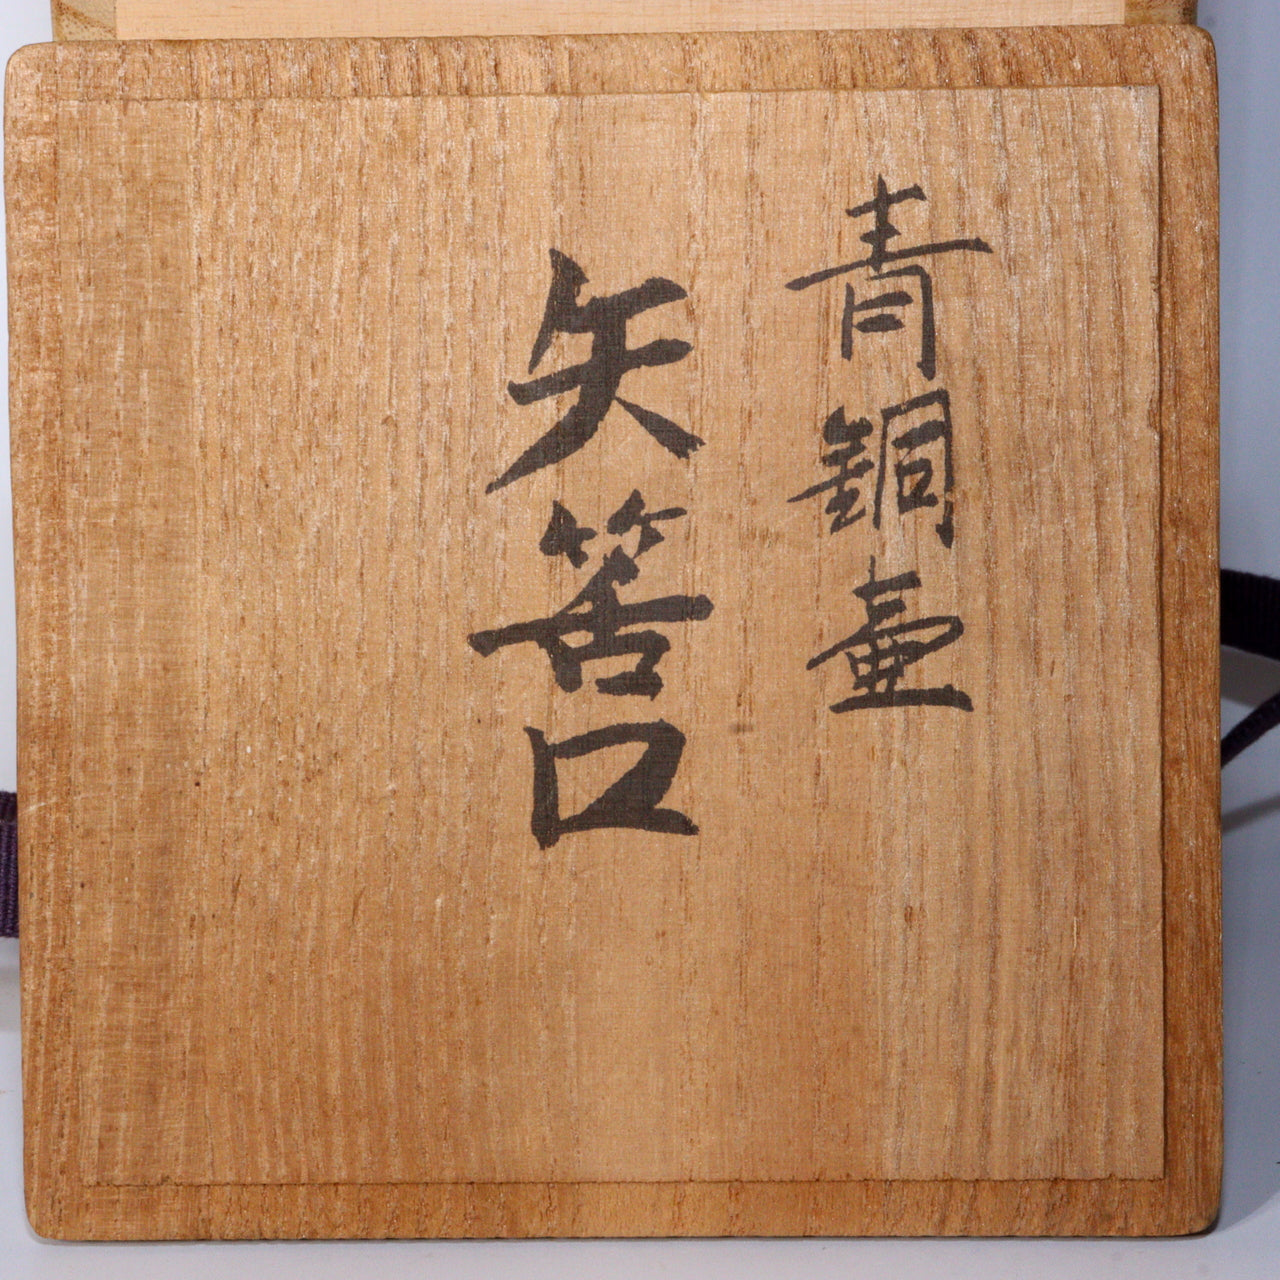 青銅壷
矢筈口